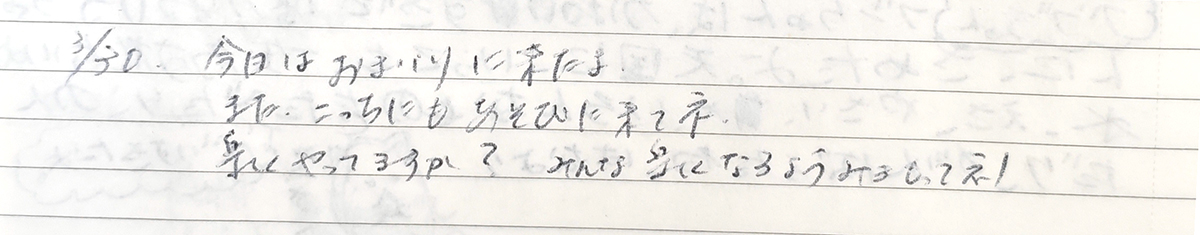 3/30. 今日はおまいりに来たよ.
また、こっちにもあそびに来てネ.
楽しくやってるかな? みんな楽になるようみまもってネ!